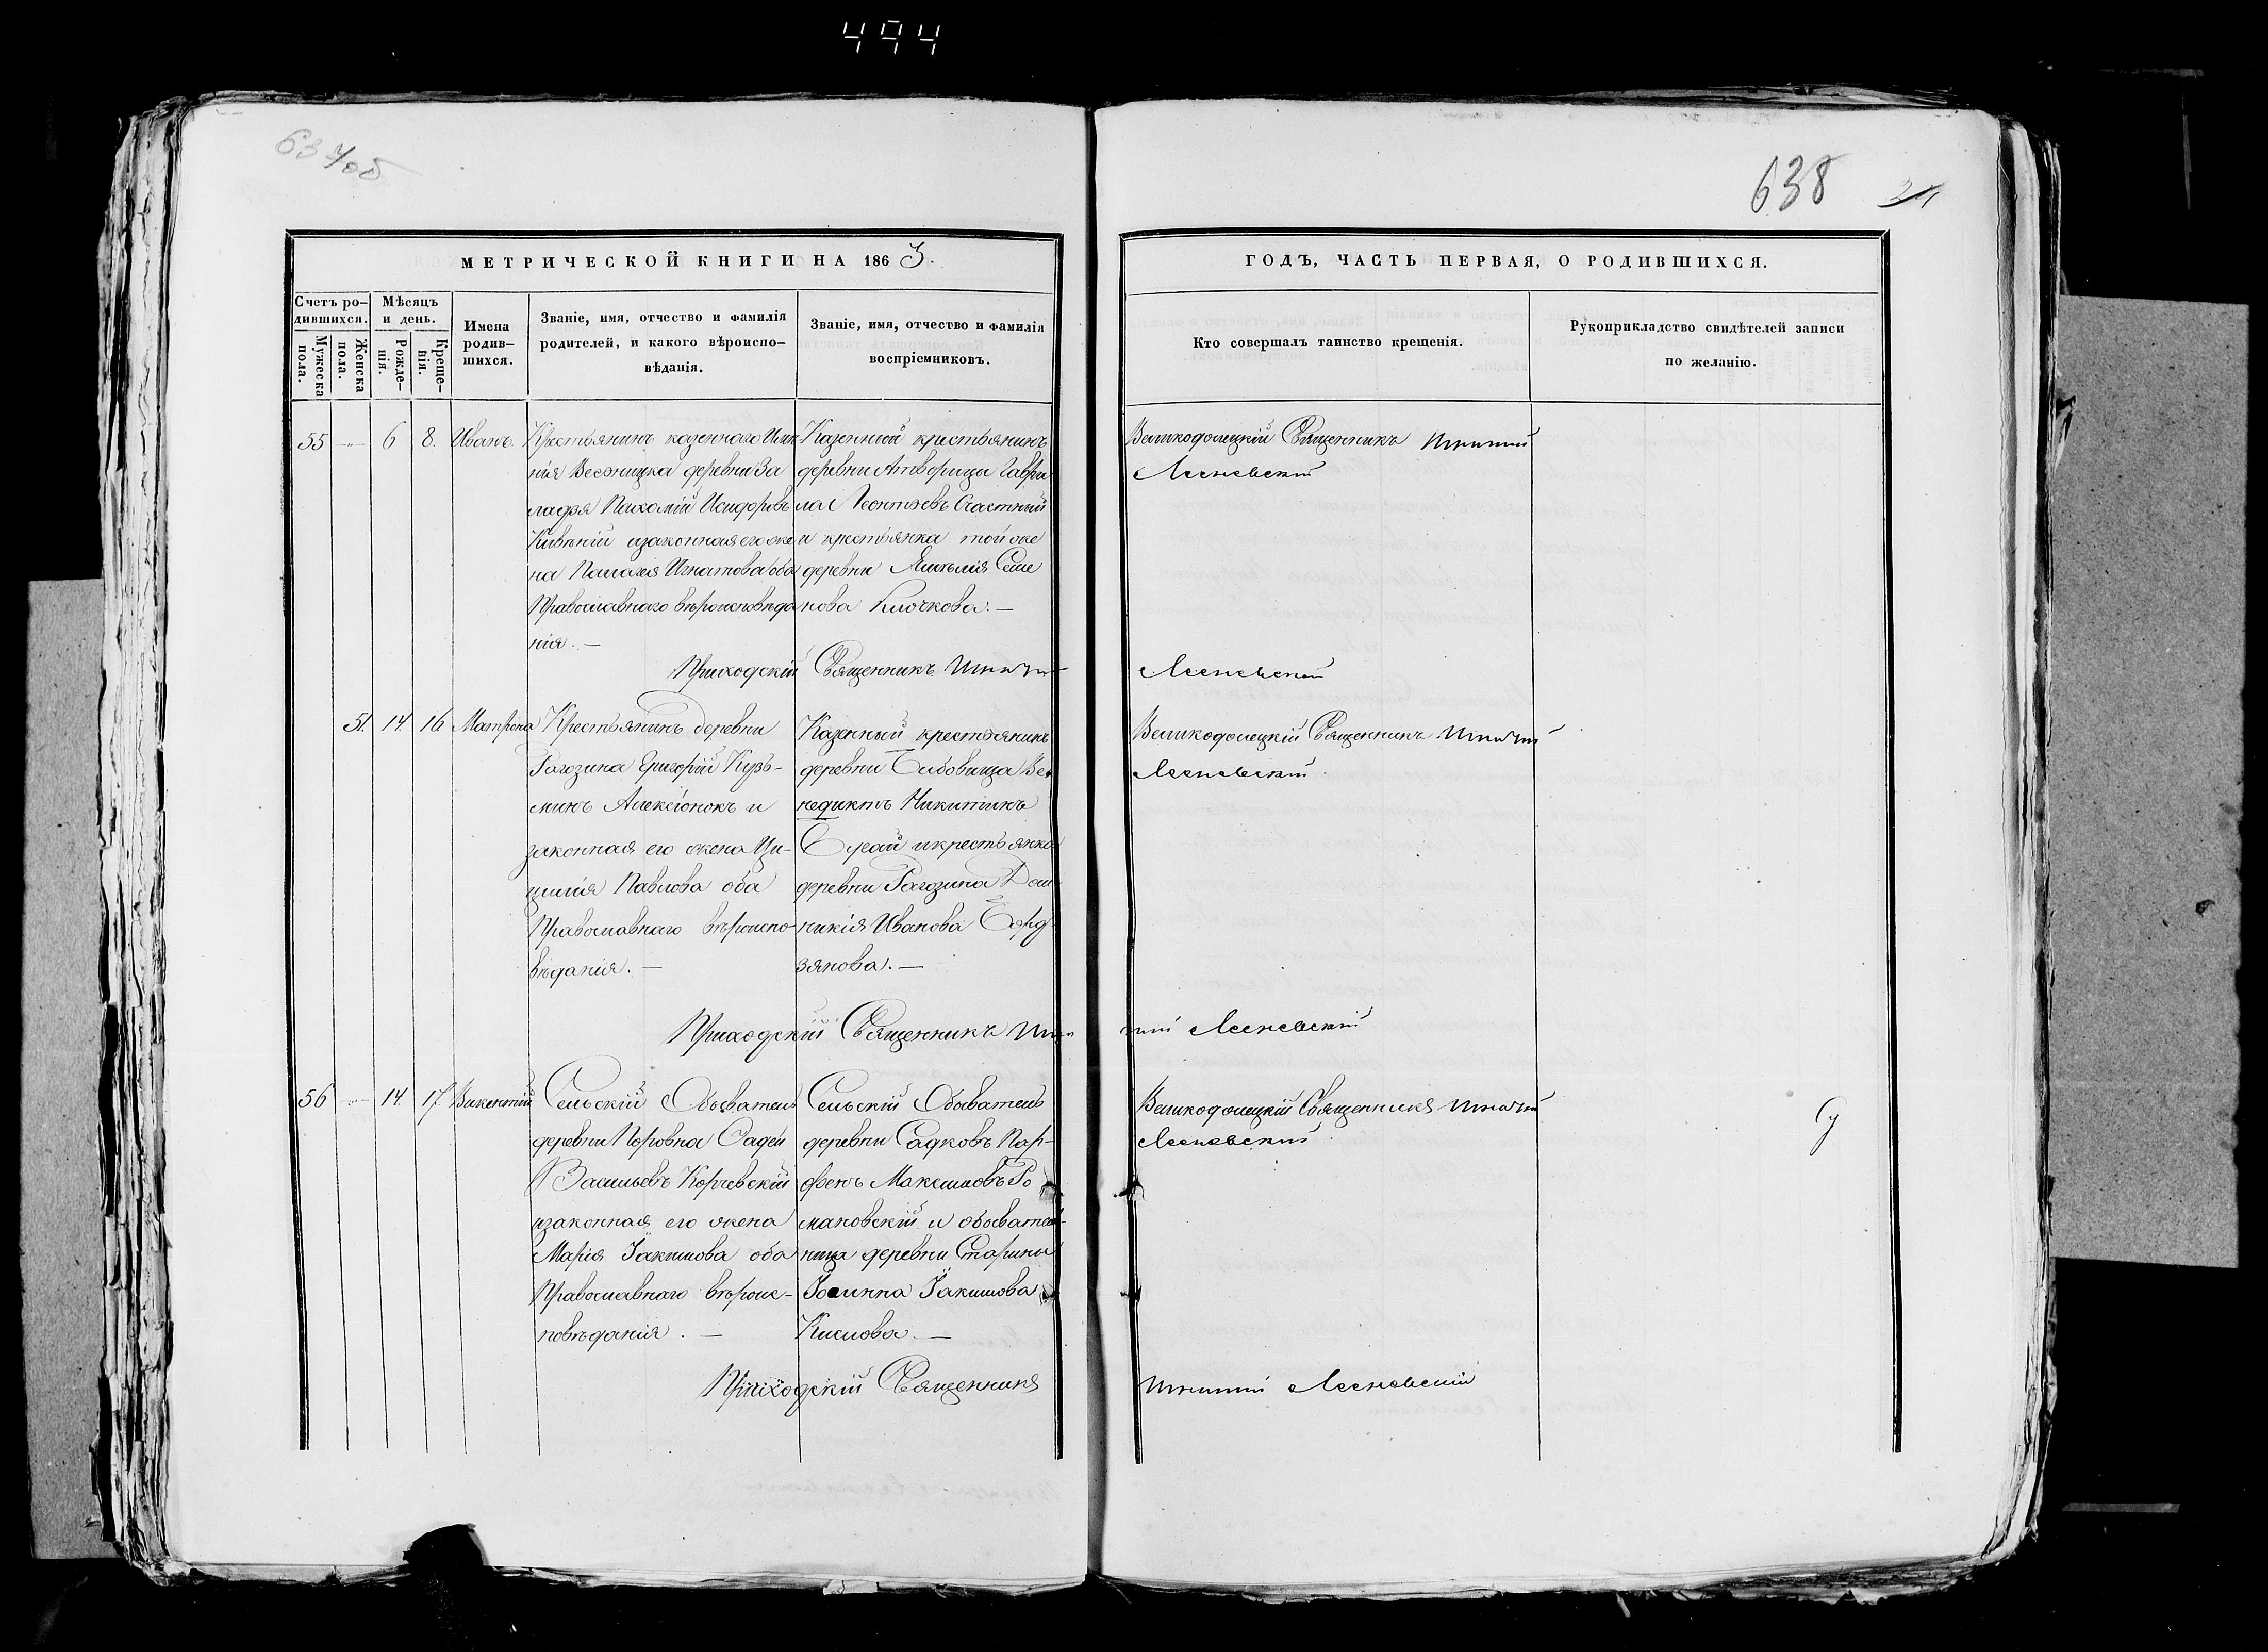 494
637/об
638
21
МЕТРИЧЕСКОЙ КНИГИ НА 1863.
ГОДЪ, ЧАСТЬ ПЕРВАЯ, О РОДИВШИХСЯ.
Счетъ ро-
дившихся.
Мужеска
пола.
Женска
пола.
Мѣсяцъ
и день.
Рожде-
нія.
Креще-
нія.
Имена
родив-
шихся.
Званіе, имя, отчество и фамилія
родителей, и какого вѣроиспо-
вѣданія.
Званіе, имя, отчество и фамилія
воспріемниковъ.
Кто совершалъ таинство крещенія.
Рукоприкладство свидѣтелей записи
по желанію.
55 6 8. Иванъ.
Крестьянинъ казеннаго Имѣ
нія Весницка деревни За
ладзя Пахомій Исидоровъ
изаконная его же
на Пелагея Игнатова оба
Православнаго вѣроисповѣда
нія. —
Казенный крестьянинъ
деревни Гаври
ла Леонтьевъ Счастный
и крестьянка той же
деревни Емилія Семе
нова Клочкова. —
Великодолецкій Священникъ
Лесневскій
Приходскій Священникъ
Лесневскій
51. 14. 16 Матрона
Крестьянинъ деревни
Рагозина Григорій Кузь-
минъ Алексіонокъ и
законная его жена Це-
цилія Павлова оба
Православнаго вѣроиспо-
вѣданія. —
Казенный крестьянинъ
деревни Бабовища Ве
недиктъ Никитинъ
и крестьянка
деревни Рагозина Дом
никія Иванова
зянова. —
Великодолецкій Священникъ
Лесневскій.
Приходскій Священникъ
Лесневскій
56 14. 17. Викентій
Сельскій Обыватель
деревни Фадей
Васильевъ Корчевскій
изаконная его жена
Марія Іакимова оба
Православнаго вѣроис-
повѣданія. —
Сельскій Обыватель
деревни Садковъ Пар-
фенъ Максимовъ Ро
мановскій и обыватель-
ница деревни Старины
Іоанна Іакимова
Кислова. —
Великодолецкій Священникъ
Лесневскій.
Приходскій Священникъ
Лесневскій